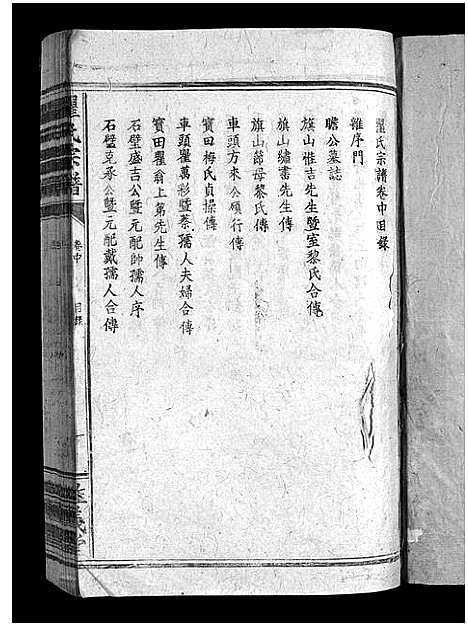 瞿氏宗譜卷中目錄
雜序門
瞻公墓誌
旗山惟吉先生暨室黎氏合傳
旗山繡書先生傳
旗山節母黎氏傳
車頭方來公碩行傳
寶田梅氏貞操傳
車頭瞿萬彩暨蔡孺人夫婦合傳
寶田瞿翁上第先生傳
石壁盛吉公暨元配帥孺人序
石壁克承公暨元配戴孺人合傳
瞿氏宗譜
卷中
目錄
一